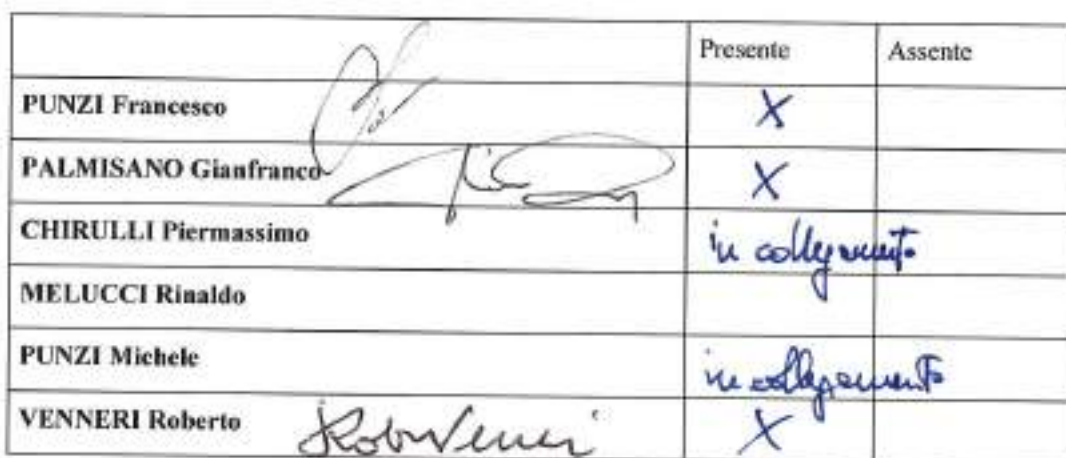 Presente Assente
PUNZI Francesco X
PALMISANO Gianfranco X
CHIRULLI Piermassimo in collegamento
MELUCCI Rinaldo
PUNZI Michele in collegamento
VENNERI Roberto X